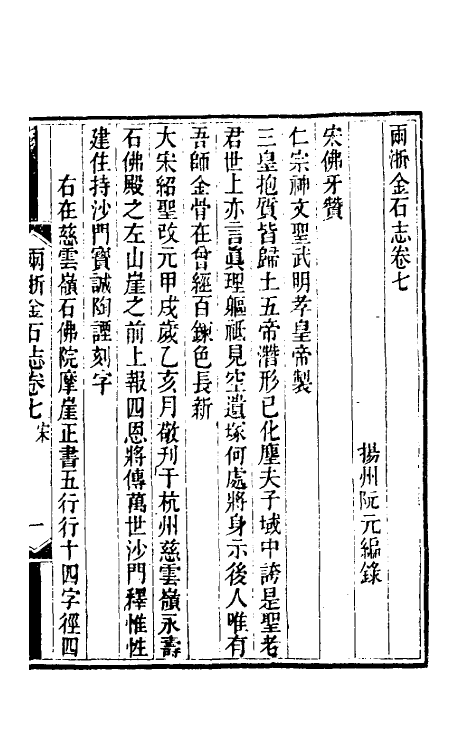 兩浙金石志卷七
揚州阮元編錄
宋佛牙贊
仁宗神文聖武明孝皇帝製
三皇抱質皆歸土五帝潛形已化塵夫子域中誇是聖老
君世上亦言眞埋軀祇見空遺塚何處將身示後人唯有
吾師金骨在曾經百鍊色長新
大宋紹聖改元甲戌歲乙亥月敬刊于杭州慈雲嶺永壽
石佛殿之左山崖之前上報四恩將傳萬世沙門釋惟性
建住持沙門寶誠陶諲刻字
右在慈雲嶺石佛院摩崖正書五行行十四字徑四
兩浙金石志卷七 宋 一